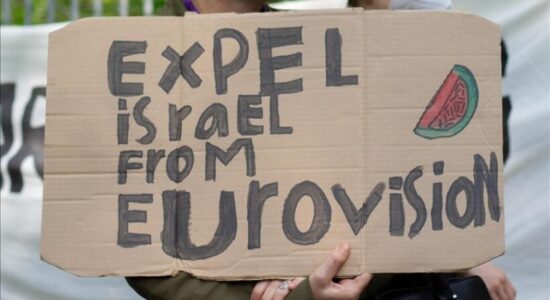 EXPEL
iSraEL
FROM
EUrovisioN